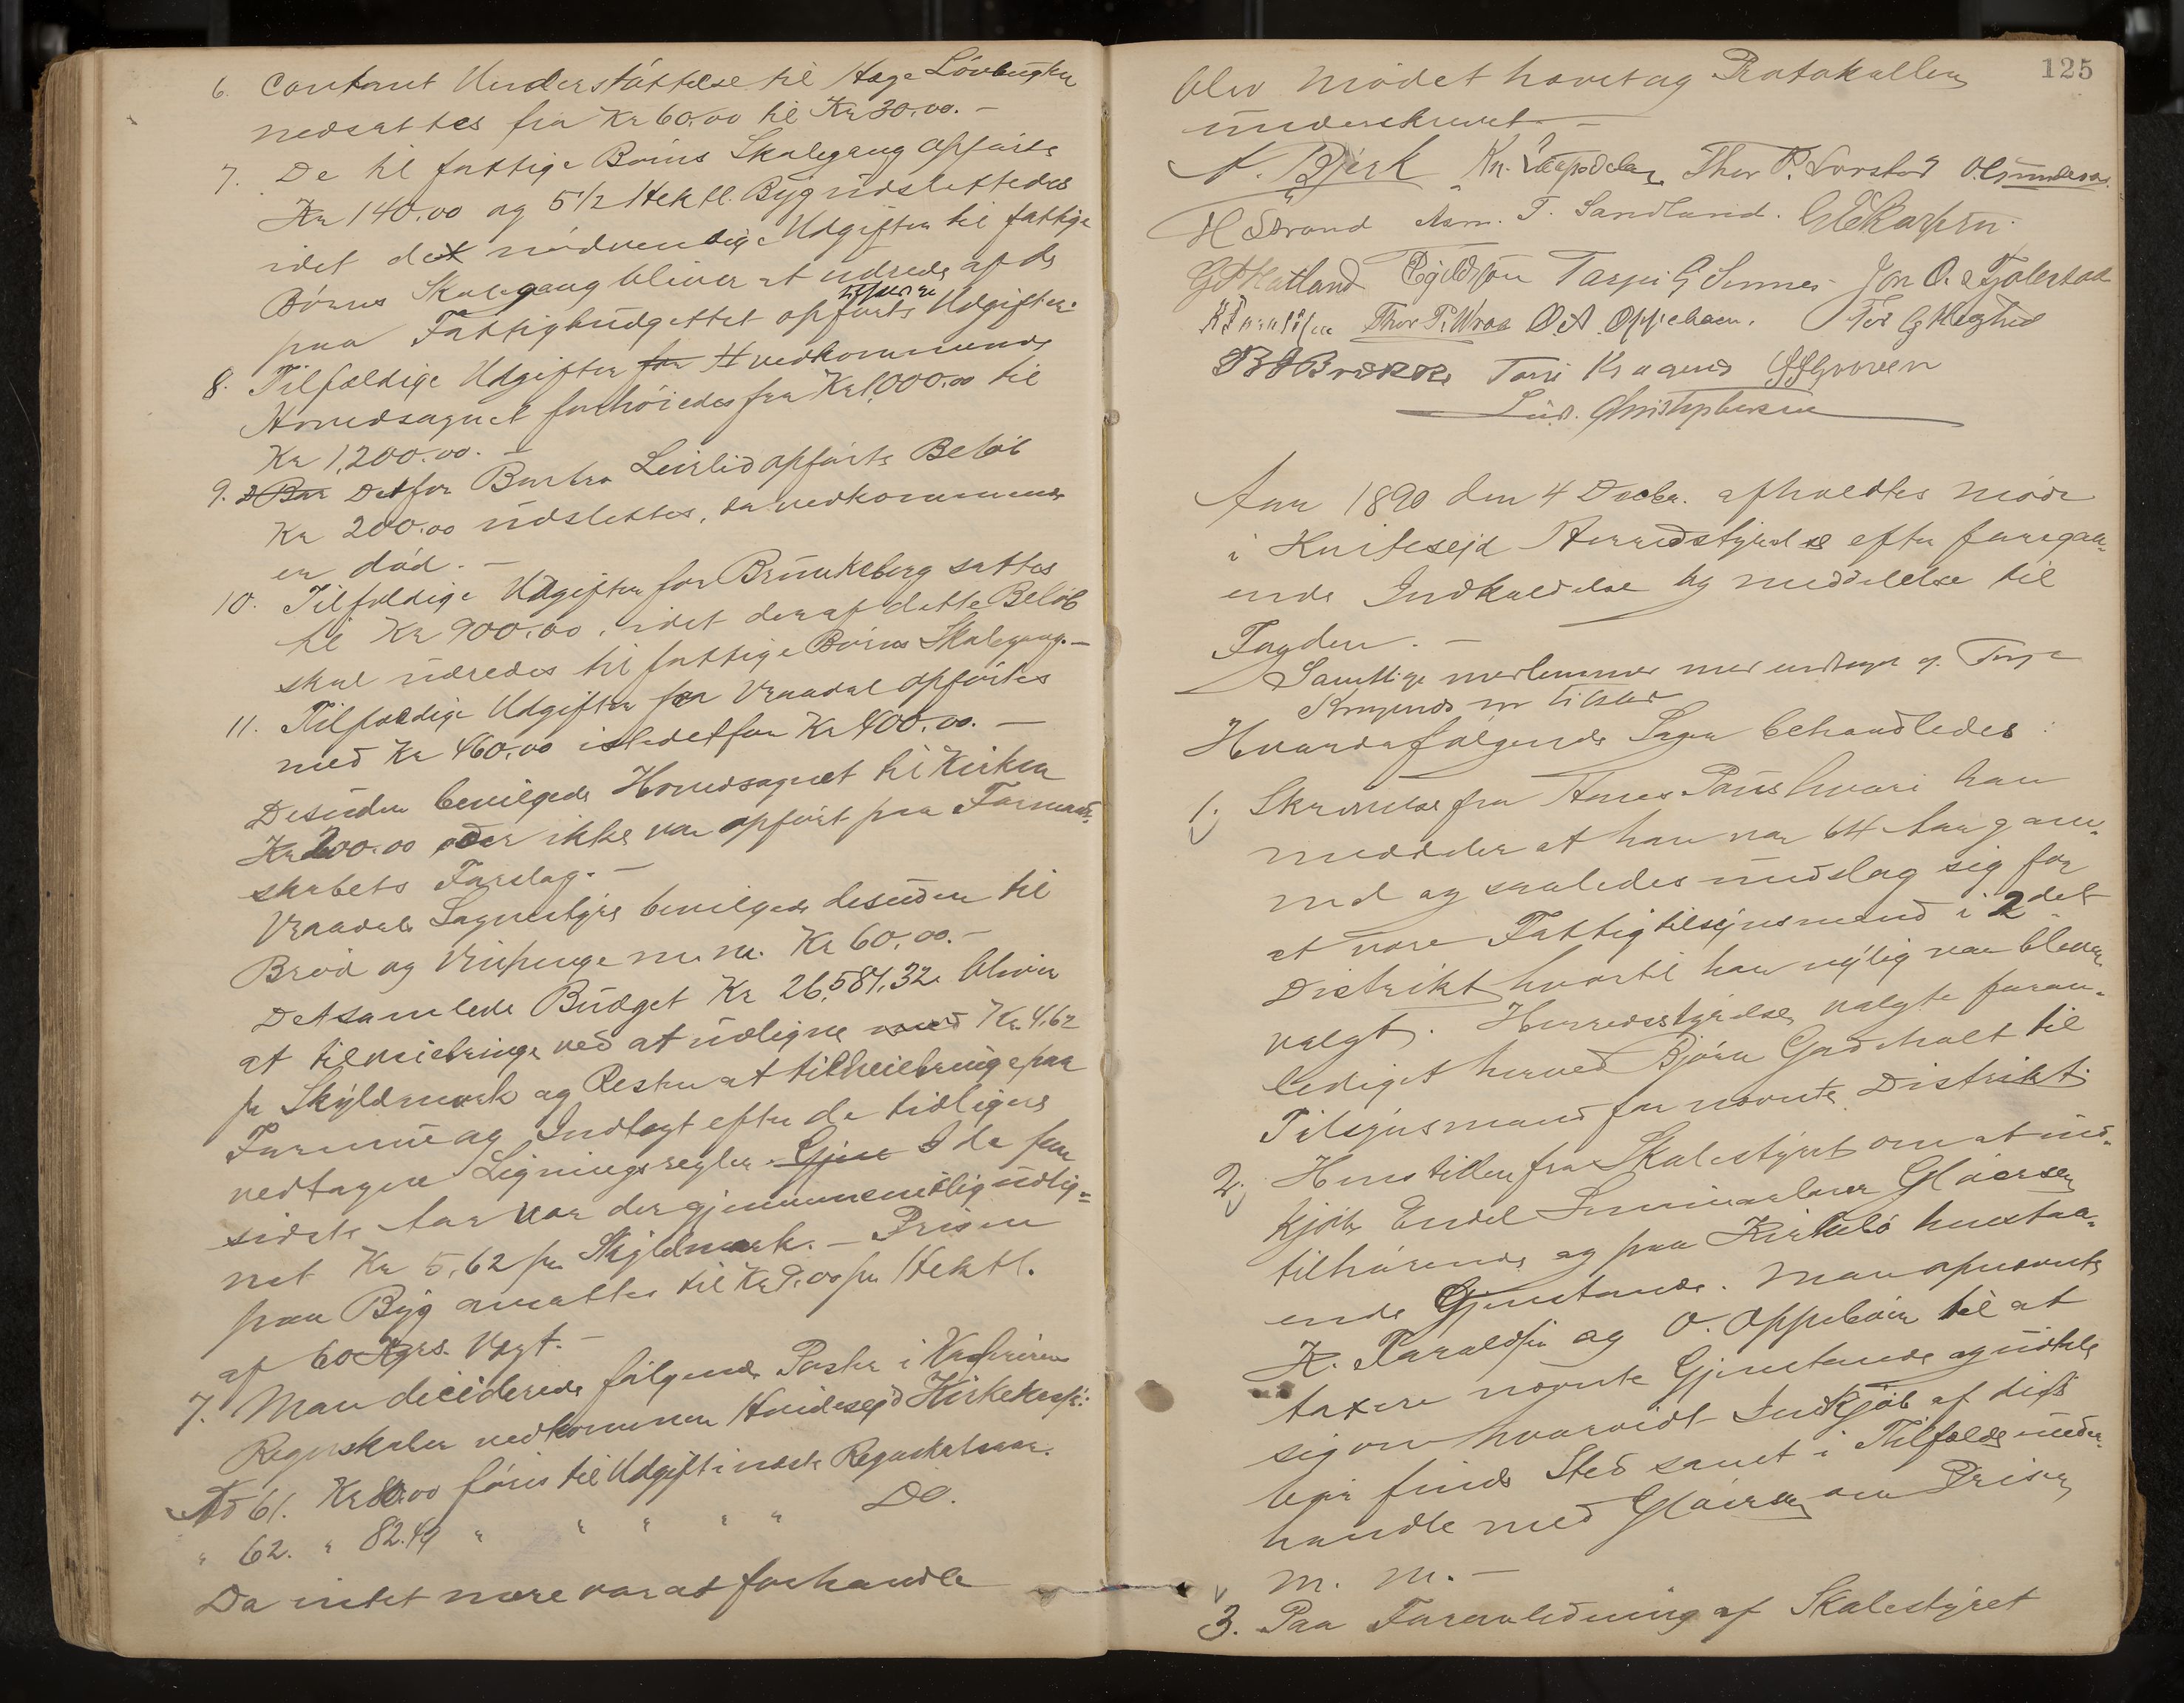 6. Contant Understøttelse til Aage Løvbugten
nedsattes fra Kr 60.00 til Kr 30.00. –
7. De til fattige Børns Skolegang opførte
Kr 140.00 og 5 1/2 Hektl. Byg udslettedes
idet de nødvendige Udgifter til fattige
Børns Skolegang bliver at udrede af de
paa Fattigbudgettet opførte Udgifter.
8. Tilfældige Udgifter for H vedkommende
Hovedsognet forhøiedes fra Kr 1,000.00 til
Kr 1,200.00. –
9. Det for Leirlid opførte Beløb
Kr 200.00 udslettes, da vedkommende
er død. –
10. Tilfeldige Udgifter for Brunkeberg sattes
til Kr 900.00, idet der af dette Beløb
skal udredes til fattige Børns Skolegang. –
11. Tilfældige Udgifter for Vraadal opførtes
med Kr 460.00 istedetfor Kr 400.00. –
Desuden bevilgede Hovedsognet til Kirken
Kr 200.00 der ikke var opført paa Formand-
skabets Forslag. –
Vraadals Sognestyre bevilgede desuden til
Brød og Vinpenge m. m. Kr 60.00. –
Det samlede Budget Kr 26,581,32 bliver
at tilveiebringe ved at udligne med Kr. 4.62
pr Skyldmark og Resten at tilveiebringe paa
Formue og Indtægt efter de tidligere
vedtagne Ligningsregler. Gjen I de fem
sidste Aar var der gjennemsnitlig udlig-
net Kr 5,62 pr Skyldmark. – Prisen
paa Byg ansattes til Kr 9.00 pr Hektl.
af 60 Kgrs. Vægt. –
7. Man deciderede følgende Poster i Kasserens
Regnskaber vedkommen Hvidesejd Kirkekasse:
No 61. Kr 80.00 føres til Udgift i næste Regnskabsaar.
" 62. " 82.49 " " " " " Do.
Da intet mere var at forhandle
125
blev Mødet hævet og Protokollen
underskrevet –
A. Bjerk Thor P. Torstad O. Gundersen
H Strand Asm. T. Sandland.
G. Hatland Tarjei G Sinnes Jon O. Fjalestad
Thor P. Wraa O A Oppeboen.
Tarje Krogend
Lud. Christophersen
Aar 1890 den 4 Decbr. afholdtes Møde
i Hvitesejd Herredstyrelse efter foregaa-
ende Indkaldelse og meddelelse til
Fogden. –
Samtlige medlemmer med undtagen af Tarje
Krogends var tilstede
Hvorda følgende Sager behandledes:
1. Skrivelse fra Hans Paus hvori han
meddeler at han var 64 Aar gam-
mel og saaledes undslog sig for
at være Fattigtilsynsmand i 2det
Distrikt hvortil han nylig var bleven
valgt. Herredsstyrelsen valgte foran-
lediget herved Bjørn Godtholt til
Tilsynsmand for nævnte Distrikt.
2. Henstillen fra Skolestyret om at ind-
kjøbe Endel Seminarlærer Gløersen
tilhørende og paa Kirkebø henstaa-
ende Gjenstande. Man opnævnte
K. Taraldsen og O. Oppeboen til at
taxere nævnte Gjenstande og udtale
sig om hvorvidt Indkjøb af disse
bør finde Sted samt i Tilfælde under-
handle med Gløersen om Prisen
m. m. –
3. Paa Foranledning af Skolestyret